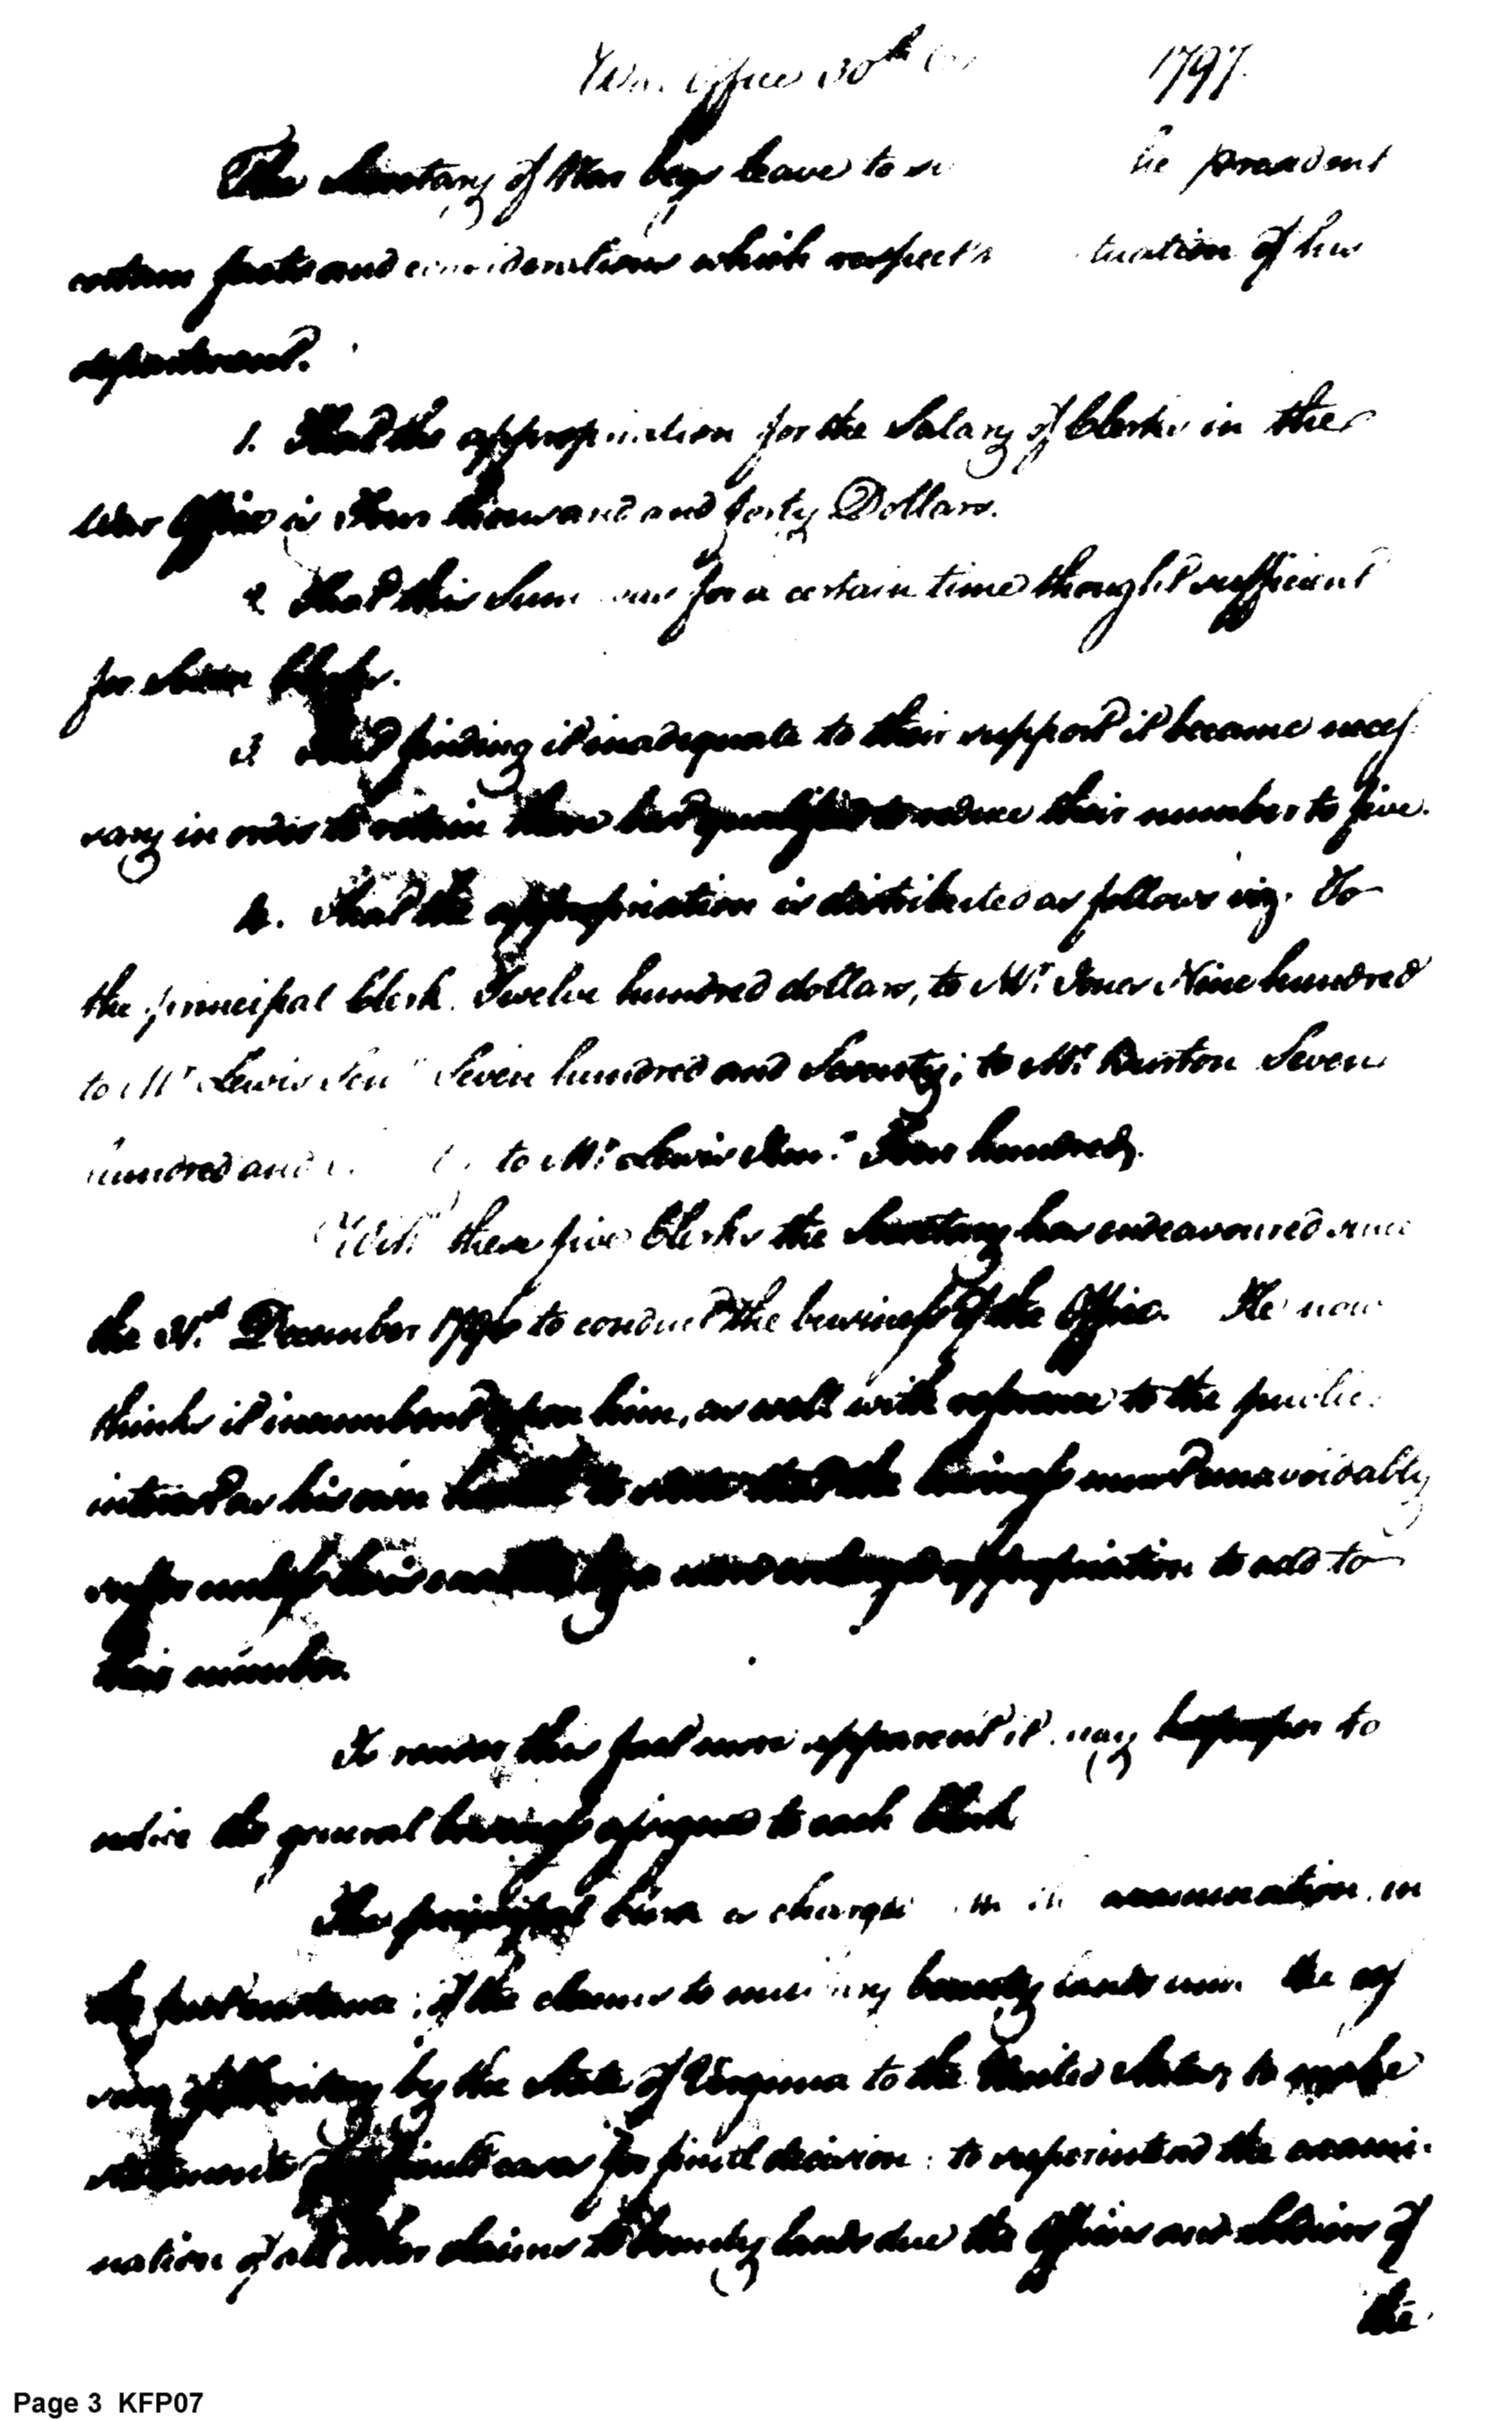 War Office 30th 1797.
The Secretary of War begs leave to he president
certain facts and considerations which respects tuation of his
department.
1. That the appropriation for the Salary of Clerks in the
War Office is Four thousand and forty Dollars.
2 That this Sum was for a certain time thought sufficient
for seven Clerks.
3 That finding it inadequate to their support it became neces
sary in order to retain those best qualified to reduce their number to five.
4. That the appropriation is distributed as follows viz. To
the principal Clerk Twelve hundred dollars, to Mr. Jones Nine hundred
to Mr Lewis Senr Seven hundred and Seventy; to Mr. Burton Seven
hundred and to Mr. Lewis Junr. Four hundred.
With these five Clerks the Secretary has endeavoured since
the 31st December 1796 to conduct the business of the Office. He now
thinks it incumbent upon him, as well with reference to the public
interest as his own to state that the business must unavoidably
suffer unless he is enabled by a new enlarged appropriation to add to
their number.
To render this fact more apparent it may be proper to
notice the general business assigned to each Clerk
The principal Clerk is charged with the examination, in
the first instance, of the claims to military bounty lands the ces
sion of territory by the State of Virginia to the United States, to make
statements of difficult cases for final decision: to superintend the exami-
nation of all other claims to bounty lands due the Officers and Soldiers of
the
Page 3 KFP07